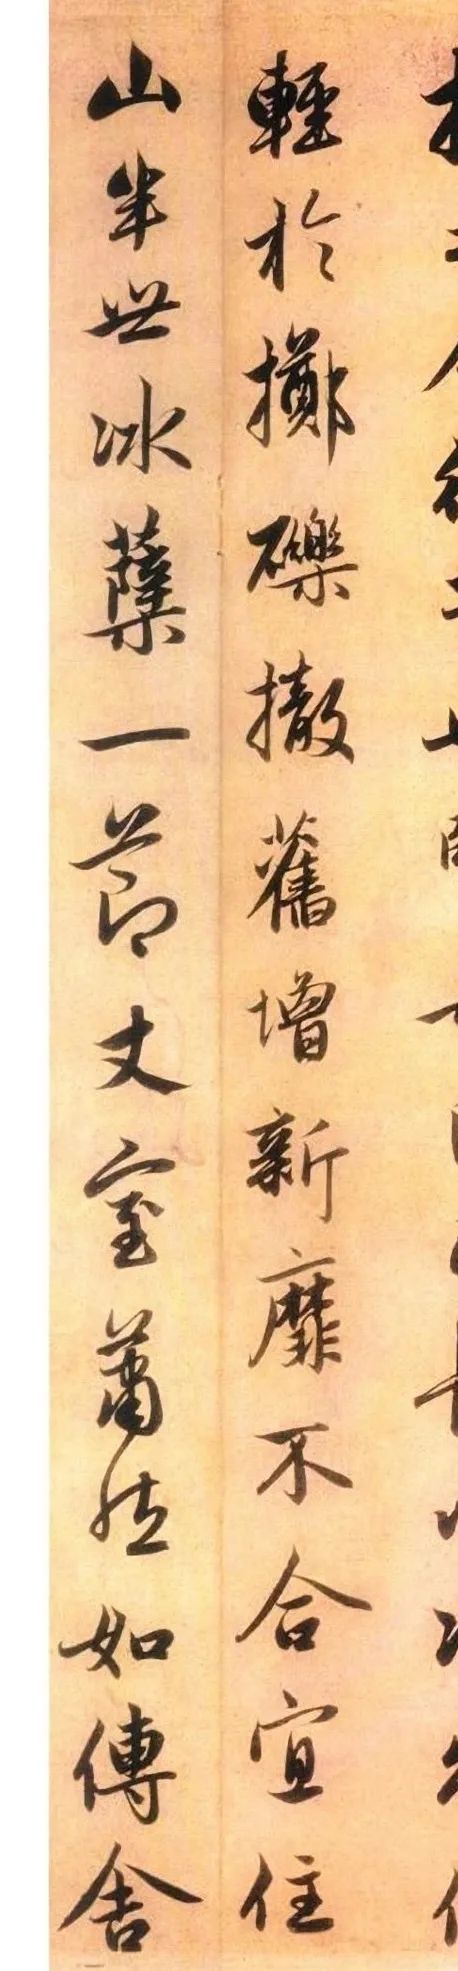 輕於擲礫撤舊增新靡不合宜住
山半世冰蘗一節丈室蕭然如傳舍